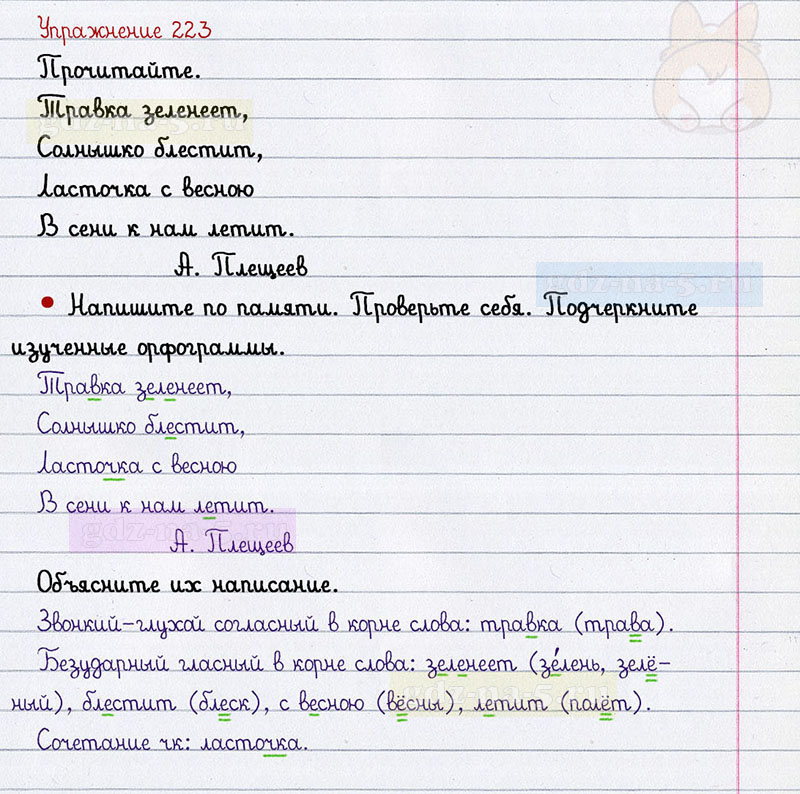 Упражнение 223
Прочитайте.
Травка зеленеет,
Солнышко блестит,
Ласточка с весною
В сени к нам летит.
А. Плещеев
• Напишите по памяти. Проверьте себя. Подчеркните
изученные орфограммы.
Травка зеленеет,
Солнышко блестит,
Ласточка с весною
В сени к нам летит.
А. Плещеев
Объясните их написание.
Звонкий-глухой согласный в корне слова: травка (трава).
Безударный гласный в корне слова: зеленеет (зе́лень, зелё-
ный), блестит (блеск), с весною (вёсны), летит (полёт).
Сочетание чк: ласточка.
gdz-na-5.ru
gdz-na-5.ru
gdz-na-5.ru
gdz-na-5.ru